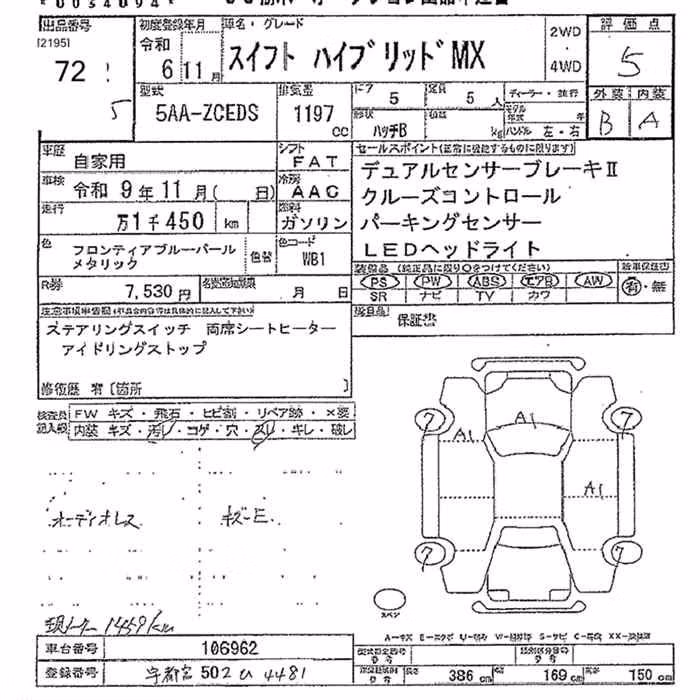 *0034094*
出品番号 初度登録年月 車名・グレード 2WD 評価点
[2195] 令和 スイフト ハイブリッドMX 5
72 6 11月 4WD
5 型式 排気量 ドア 定員 ディーラー・並行 外装 内装
5AA-ZCEDS 1197 cc 5 5人 B A
形状 ハッチB kg ハンドル 左・右
車歴 自家用 シフト FAT セールスポイント(正常に機能するものに限ります)
車検 令和 9年11月( 日) 冷房 AAC デュアルセンサーブレーキII
クルーズコントロール
走行 万1千450 km 燃料 ガソリン パーキングセンサー
LEDヘッドライト
色 フロンティアブルーパール 色替 色コード
メタリック WB1
装備品 (純正品に限り○をつけてください)
PS PW ABS エアB AW 有・無
SR ナビ TV カワ
R券 7,530円 月 日
保証書
ステアリングスイッチ 両席シートヒーター
アイドリングストップ
修復歴 有〔箇所 〕
検査員 FW キズ・飛石・ヒビ割・リペア跡・×要
記入欄 内装 キズ・汚レ・コゲ・穴・スレ・キレ・破レ
7 A1 A1 7
A1
オーディオレス キズーE
7 7
現メーター 1459km
スペア
車台番号 106962
登録番号 宇都宮 502 ひ 4481
386cm 169cm 150cm